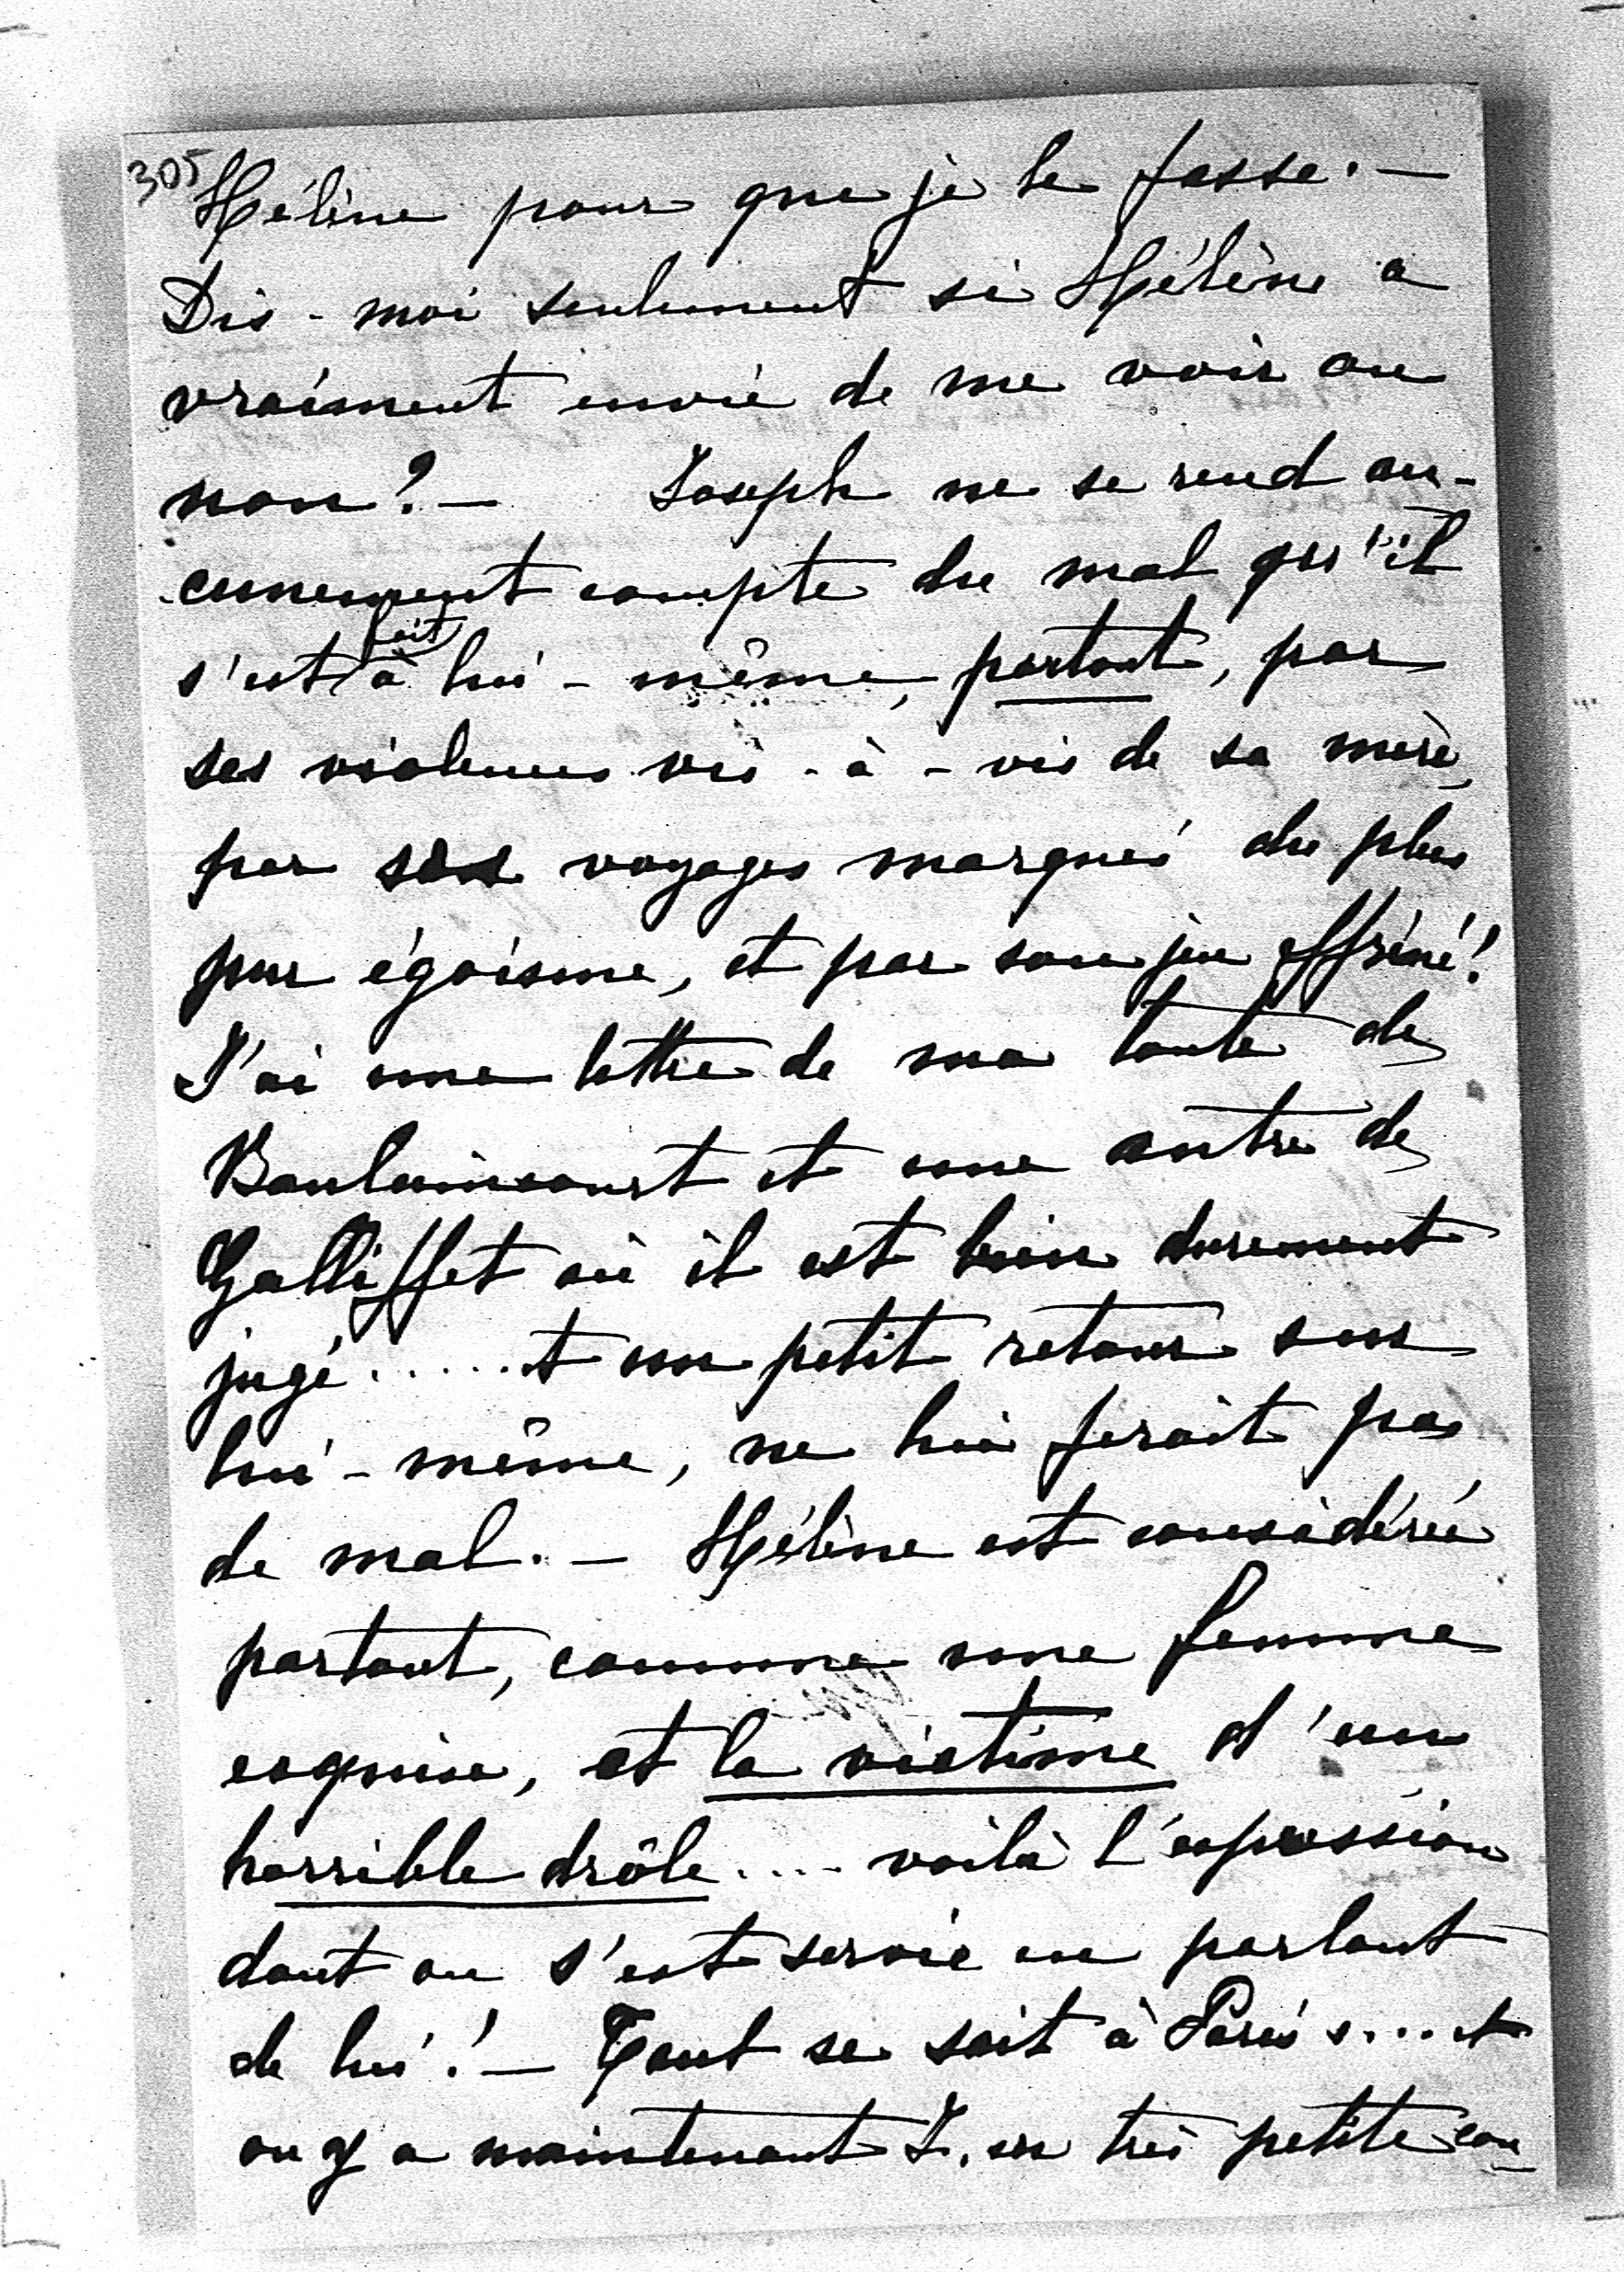 305
Hélène pour que je le fasse. —
Dis-moi seulement si Hélène a
vraiment envie de me voir ou
non? — Joseph ne se rend au-
cunement compte du mal qu'il
s'est fait à lui-même, partout, par
ses violences vis-à-vis de sa mère,
par ses voyages marqués du plus
pur égoïsme, et par son jeu effréné!
J'ai une lettre de ma tante de
Beaulaincourt et une autre de
Galliffet où il est bien durement
jugé..... et un petit retour sur
lui-même, ne lui ferait pas
de mal. — Hélène est considérée
partout, comme une femme
exquise, et la victime d'un
horrible drôle.... voilà l'expression
dont on s'est servie en parlant
de lui! — Tout se sait à Paris.... et
on y a maintenant J. en très petite con-